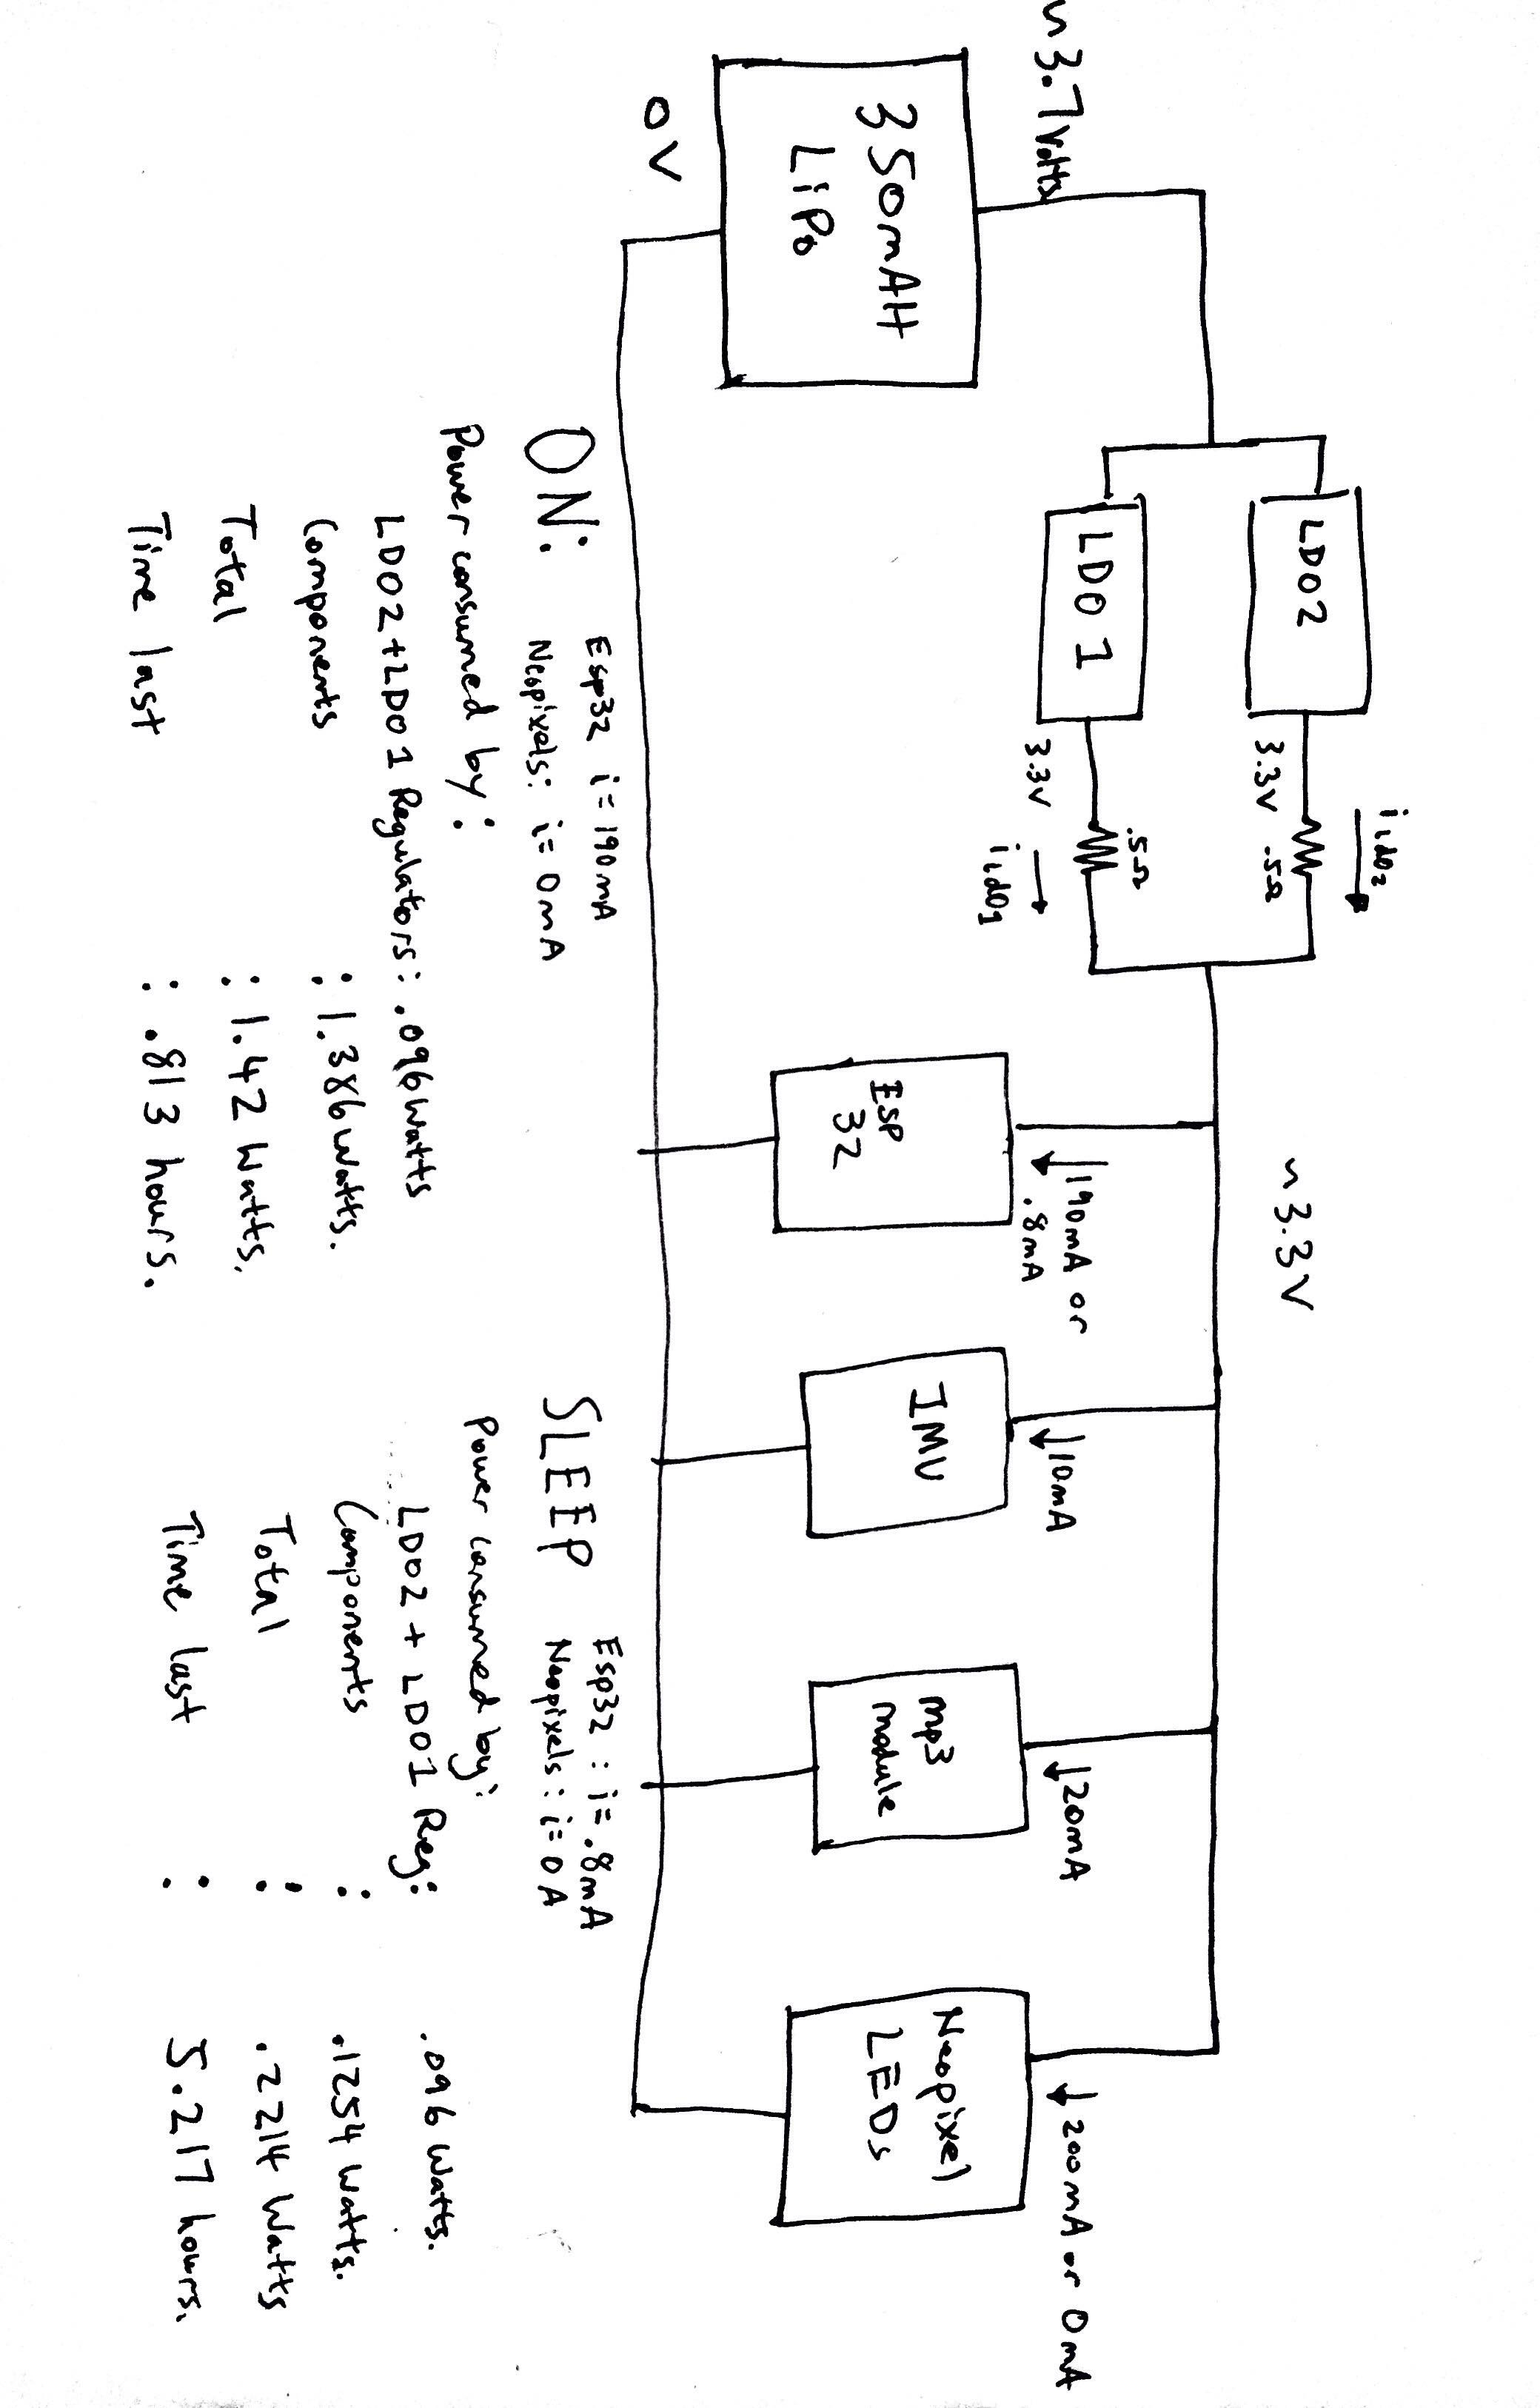 i ldo2
LDO2
3.3V .5Ω
~3.3V
.5Ω
LDO 1
3.3V
i ldo1
~3.7 Volts
190mA or
.8mA
10mA
20mA
200mA or 0mA
350mAH
LiPo
ESP
32
IMU
mp3
module
Neopixel
LEDs
0V
ON:
Esp32 i= 190mA
Neopixels: i= 0mA
Power consumed by:
LDO2+LDO1 Regulators: .096 Watts
Components : 1.386 Watts.
Total : 1.42 Watts.
Time last : .813 hours.
SLEEP
Esp32 : i= .8mA
Neopixels : i= 0 A
Power consumed by:
LDO2 + LDO1 Reg: .096 Watts.
Components : .1254 Watts.
Total : .2214 Watts
Time last : 5.217 hours.